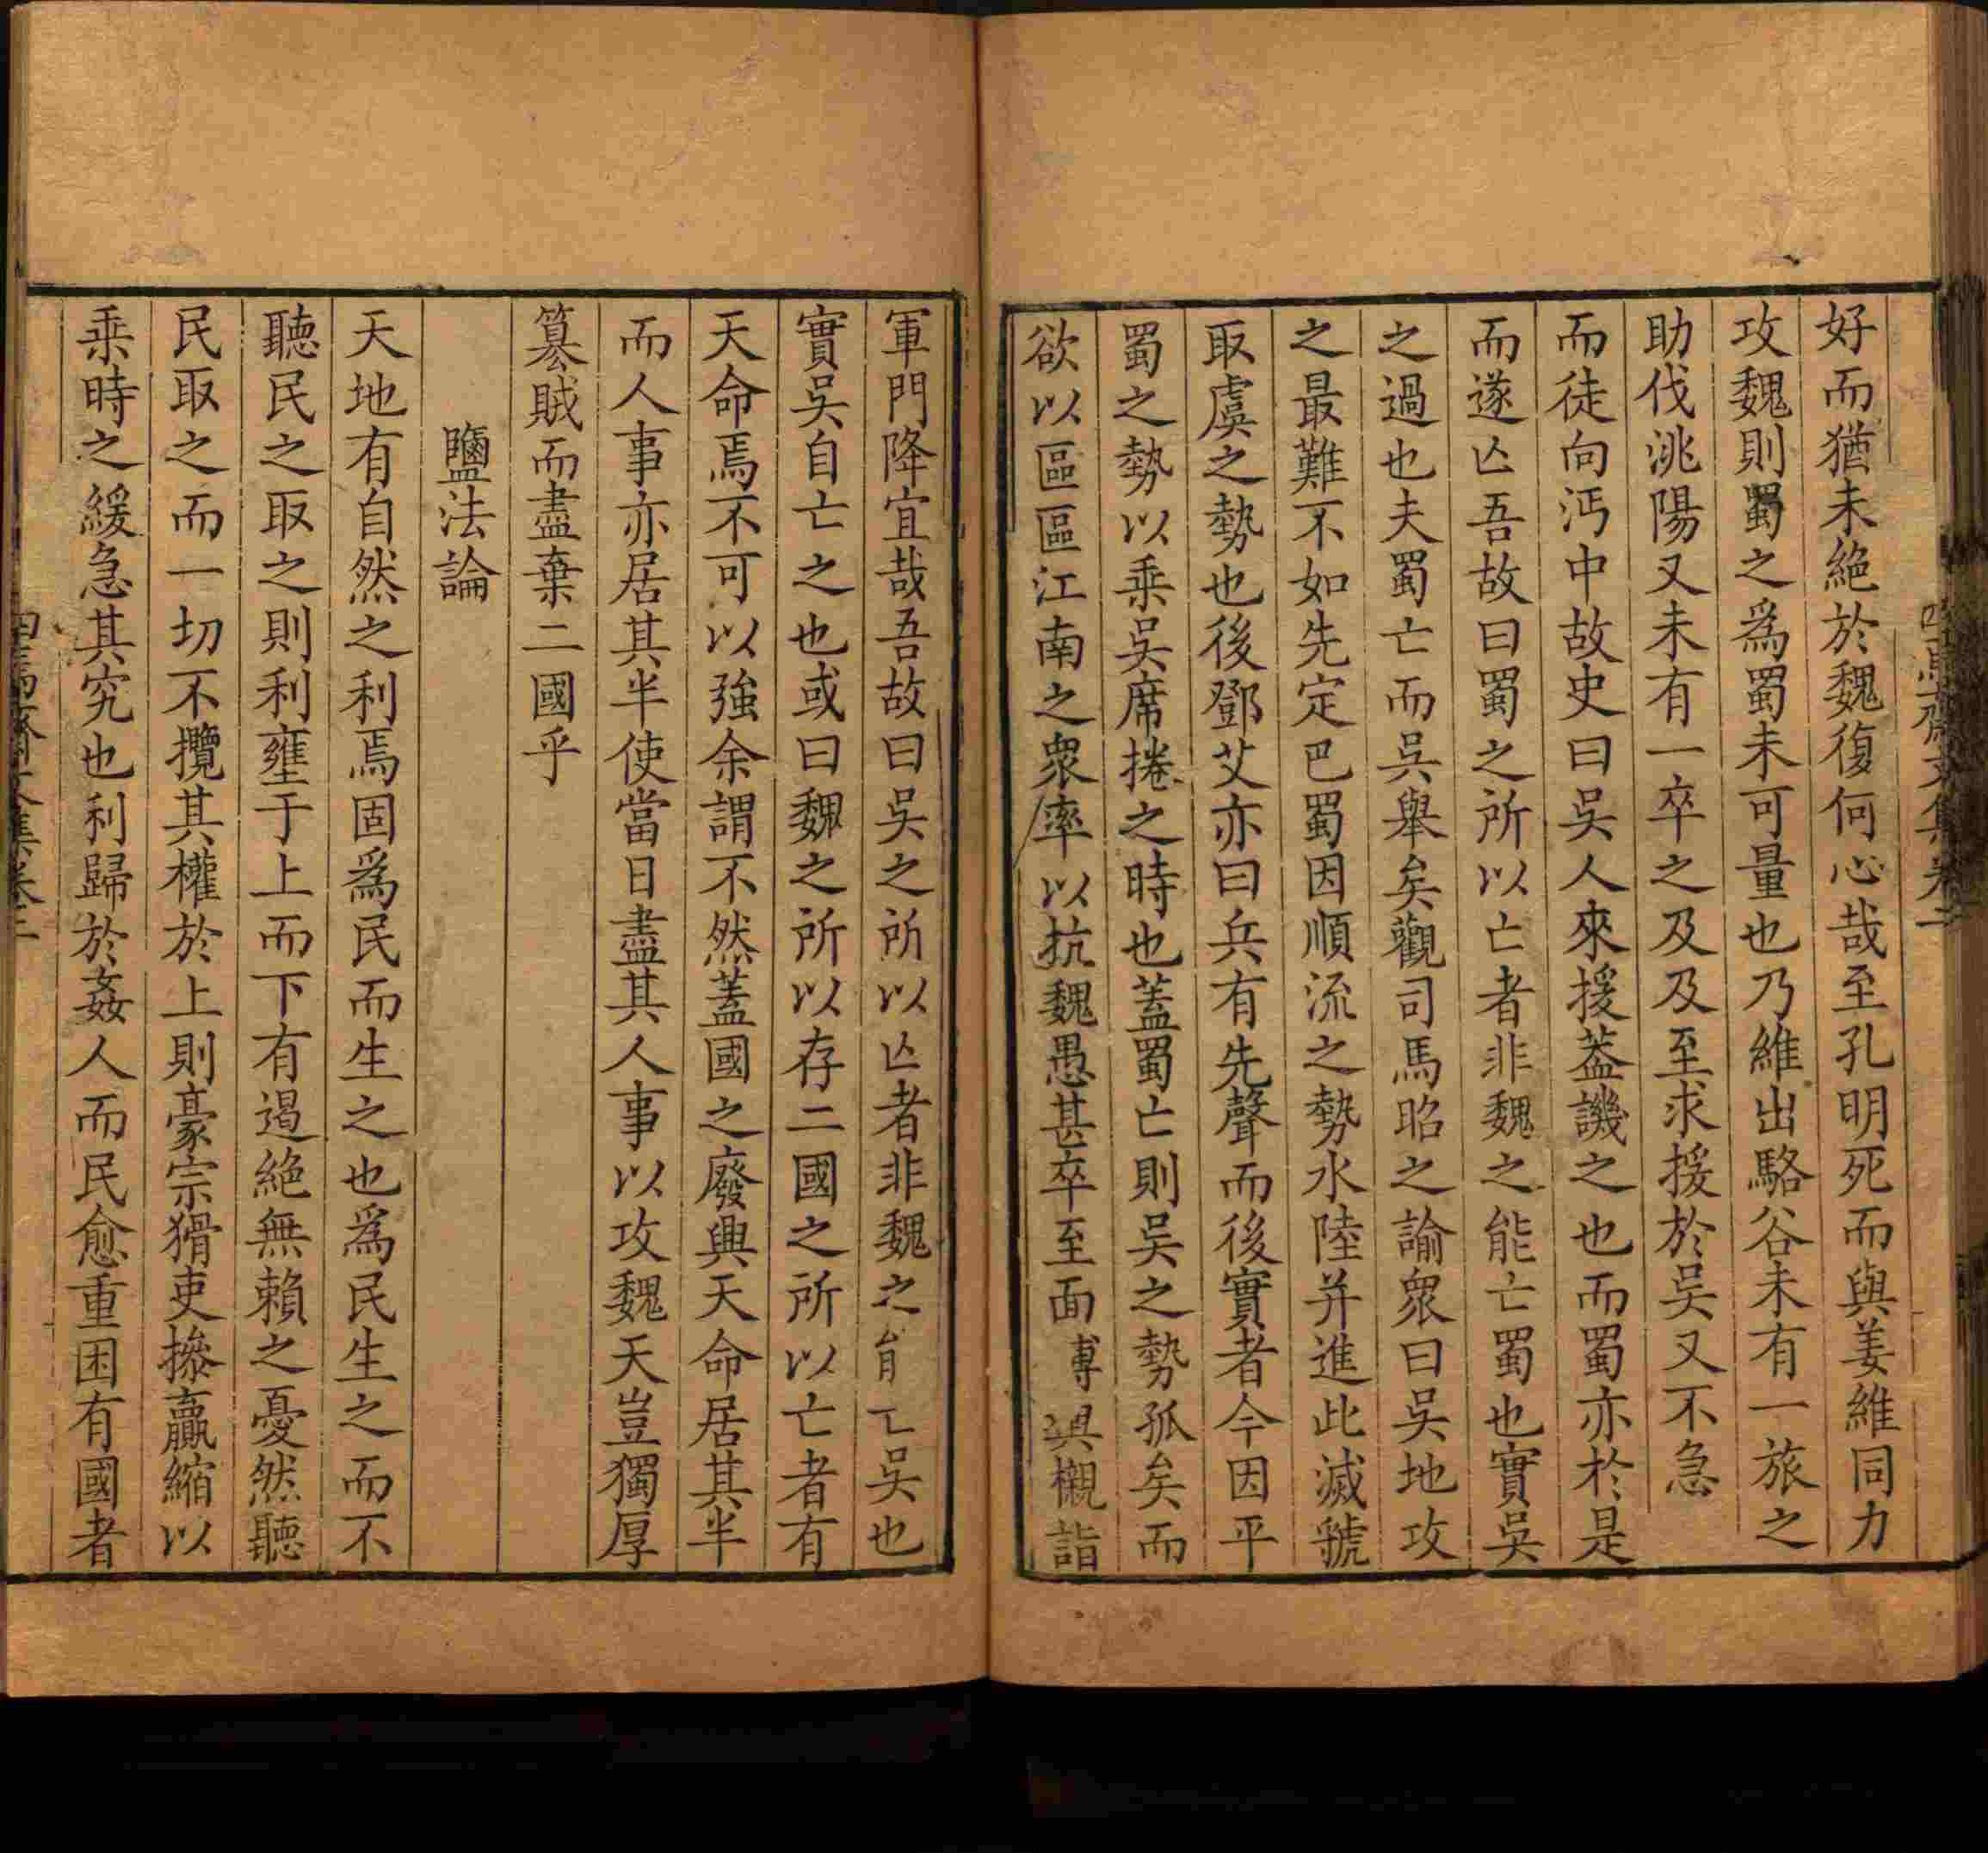 好而猶未絕於魏復何心哉至孔明死而與姜維同力
攻魏則蜀之爲蜀未可量也乃維出駱谷未有一旅之
助伐洮陽又未有一卒之及及至求援於吳又不急
而徒向沔中故史曰吳人來援葢譏之也而蜀亦於是
而遂亾吾故曰蜀之所以亡者非魏之能亡蜀也實吳
之過也夫蜀亡而吳舉矣觀司馬昭之諭衆曰吳地攻
之最難不如先定巴蜀因順流之勢水陸并進此滅虢
取虞之勢也後鄧艾亦曰兵有先聲而後實者今因平
蜀之勢以乗吳席捲之時也蓋蜀亡則吳之勢孤矣而
欲以區區江南之衆率以抗魏愚甚卒至面縛輿櫬詣
軍門降宜哉吾故曰吳之所以亾者非魏之能亡吳也
實吳自亡之也或曰魏之所以存二國之所以亡者有
天命焉不可以強余謂不然蓋國之廢興天命居其半
而人事亦居其半使當日盡其人事以攻魏天豈獨厚
篡賊而盡棄二國乎
鹽法論
天地有自然之利焉固爲民而生之也爲民生之而不
聽民之取之則利壅于上而下有遏絕無賴之憂然聽
民取之而一切不攬其權於上則豪宗猾吏摻贏縮以
乗時之緩急其究也利歸於姦人而民愈重困有國者